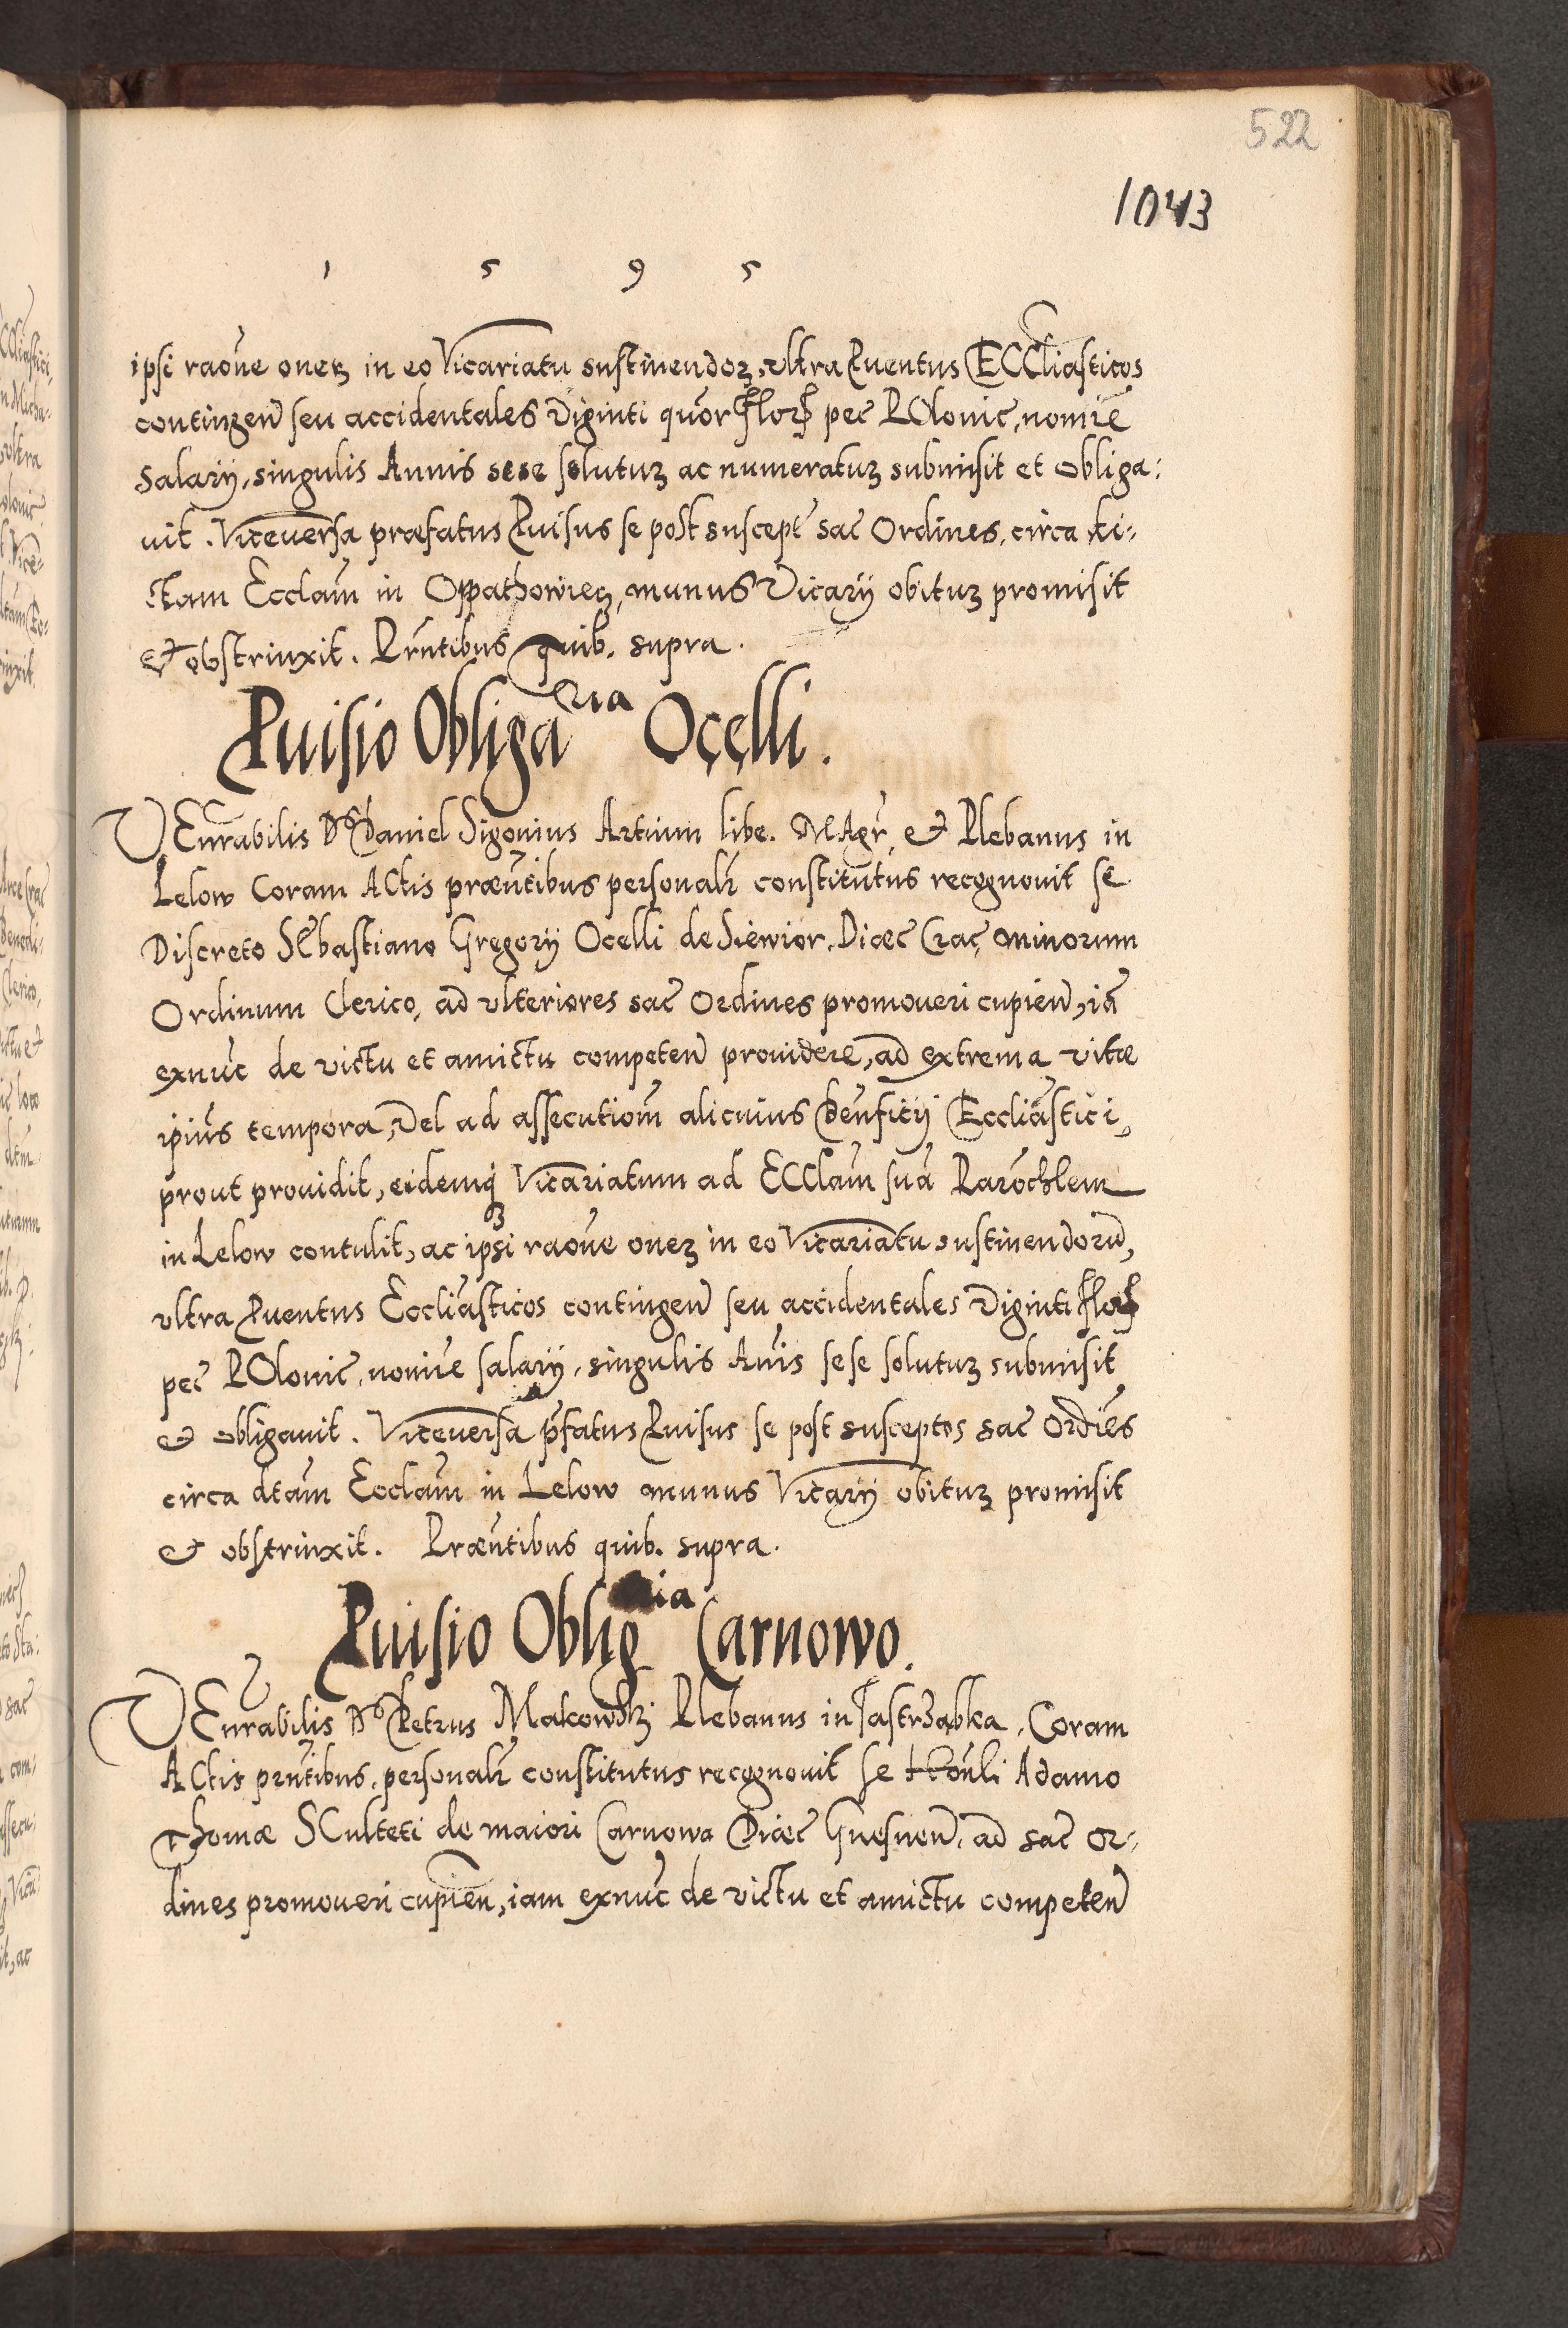 522
1043
1 5 9 5
ipsi raoñe onerꝫ in eo Vicariatu sustinendoꝫ, vltra Puentus ECCliasticos
contingeñ seu accidentales Viginti quõr fflorß pec̃ POlonic̃, nomiẽ
Salarÿ, singulis Annis sese solutuꝫ ac numeratuꝫ submisit et obliga:
uit. Viceuersa præfatus Puisus se post suscept̃ sac̃ Ordines, circa
Ecclam̃ in Oppathowiecz, munus Vicarÿ obituꝫ promisit
et obstrinxit. Prñtibus quib. supra.
Puisio Obliga^ria Ocelli.
VEnrabilis Ds Daniel Sigonius Artium libe. MAgr̃, et Plebanus in
Lelow Coram ACtis præñtibus personalr̃ constitutus recognouit se
Discreto SEbastiano Gregorÿ Ocelli de Siewior, Diæc̃ Crac̃, minorum
Ordinum Clerico, ad vlteriores sac̃ Ordines promoueri cupieñ, iã
exnũc de victu et amictu competeñ prouidere, ad extrema vitæ
ipiũs tempora, Vel ad assecutiom̃ alicuius Beñficÿ Eccliãstici,
prout prouidit, eidemqꝫ Vicariatum ad ECClam̃ suã Parõchlem
in Lelow contulit, ac ipsi raoñe onerꝫ in eo Vicariatu sustinendorũ,
vltra Puentus Eccliãsticos contingeñ seu accidentales Viginti fflorß
pec̃ POlonic̃, nomiẽ salarÿ, singulis Añis sese solutuꝫ submisit
et obligauit. Viceuersa p̃fatus Puisus se post susceptos sac̃ Ordiẽs
circa dtam̃ Ecclam̃ in Lelow munus Vicarÿ obituꝫ promisit
et obstrinxit. Præñtibus quib. supra.
Puisio Oblig^ria Carnowo.
VEnrabilis Ds Petrus Makowskj Plebanus in Jastrząbka, Coram
ACtis prñtibus, personalr̃ constitutus recognouit se Hõnli Adamo
Thomæ SCulteti de maiori Carnowo Diæc̃ Gnesneñ, ad sac̃ Or-
dines promoueri cupieñ, iam exnũc de victu et amictu competeñ